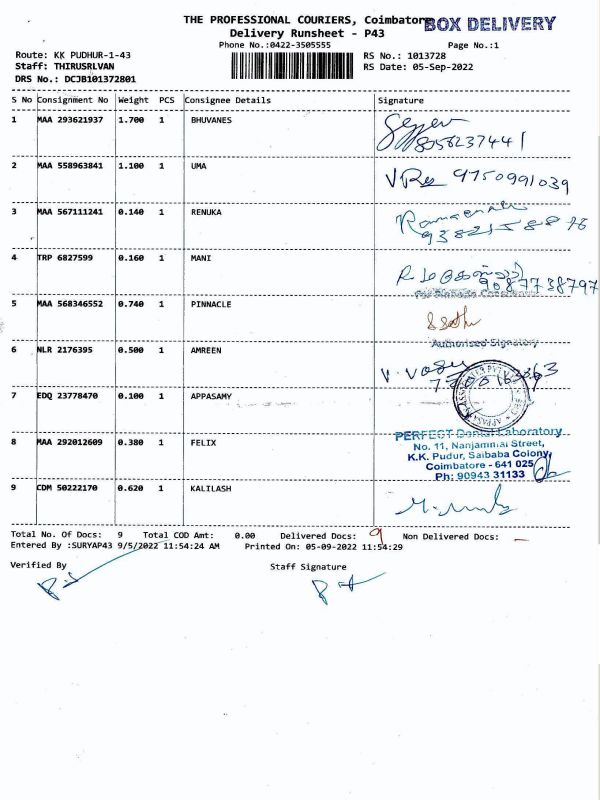 THE PROFESSIONAL COURIERS, Coimbatore
BOX DELIVERY
Delivery Runsheet - P43
Phone No.:0422-3505555
Page No.:1
Route: KK PUDHUR-1-43
RS No.: 1013728
Staff: THIRUSRLVAN
RS Date: 05-Sep-2022
DRS No.: DCJB101372801
S No Consignment No Weight PCS Consignee Details Signature
1 MAA 293621937 1.700 1 BHUVANES
2 MAA 558963841 1.100 1 UMA 9750991039
3 MAA 567111241 0.140 1 RENUKA
4 TRP 6827599 0.160 1 MANI 9087738797
5 MAA 568346552 0.740 1 PINNACLE
Authorised Signatory
6 NLR 2176395 0.500 1 AMREEN V. Vasu
7 EDQ 23778470 0.100 1 APPASAMY
PERFECT Dental Laboratory
8 MAA 292012609 0.380 1 FELIX No. 11, Nanjammai Street,
K.K. Pudur, Saibaba Colony,
Coimbatore - 641 025
Ph: 90943 31133
9 CDM 50222170 0.620 1 KALILASH
Total No. Of Docs: 9 Total COD Amt: 0.00 Delivered Docs: 9 Non Delivered Docs: –
Entered By :SURYAP43 9/5/2022 11:54:24 AM Printed On: 05-09-2022 11:54:29
Verified By Staff Signature